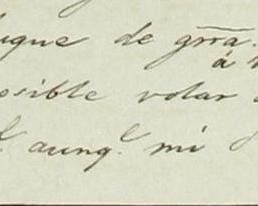 uque de grra.
á
osible volar
aunq.e mi